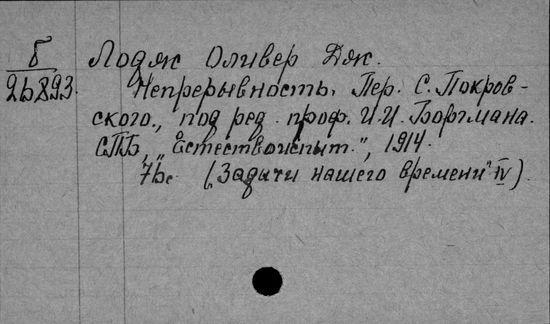 Б
26893.
Лодж Оливер Дж.
Непрерывность. Пер. С. Покров-
ского, под ред. проф. И.И. Боргмана.
СПБ, „Естествоиспыт.", 1914.
76с. (Задачи нашего времени IV).